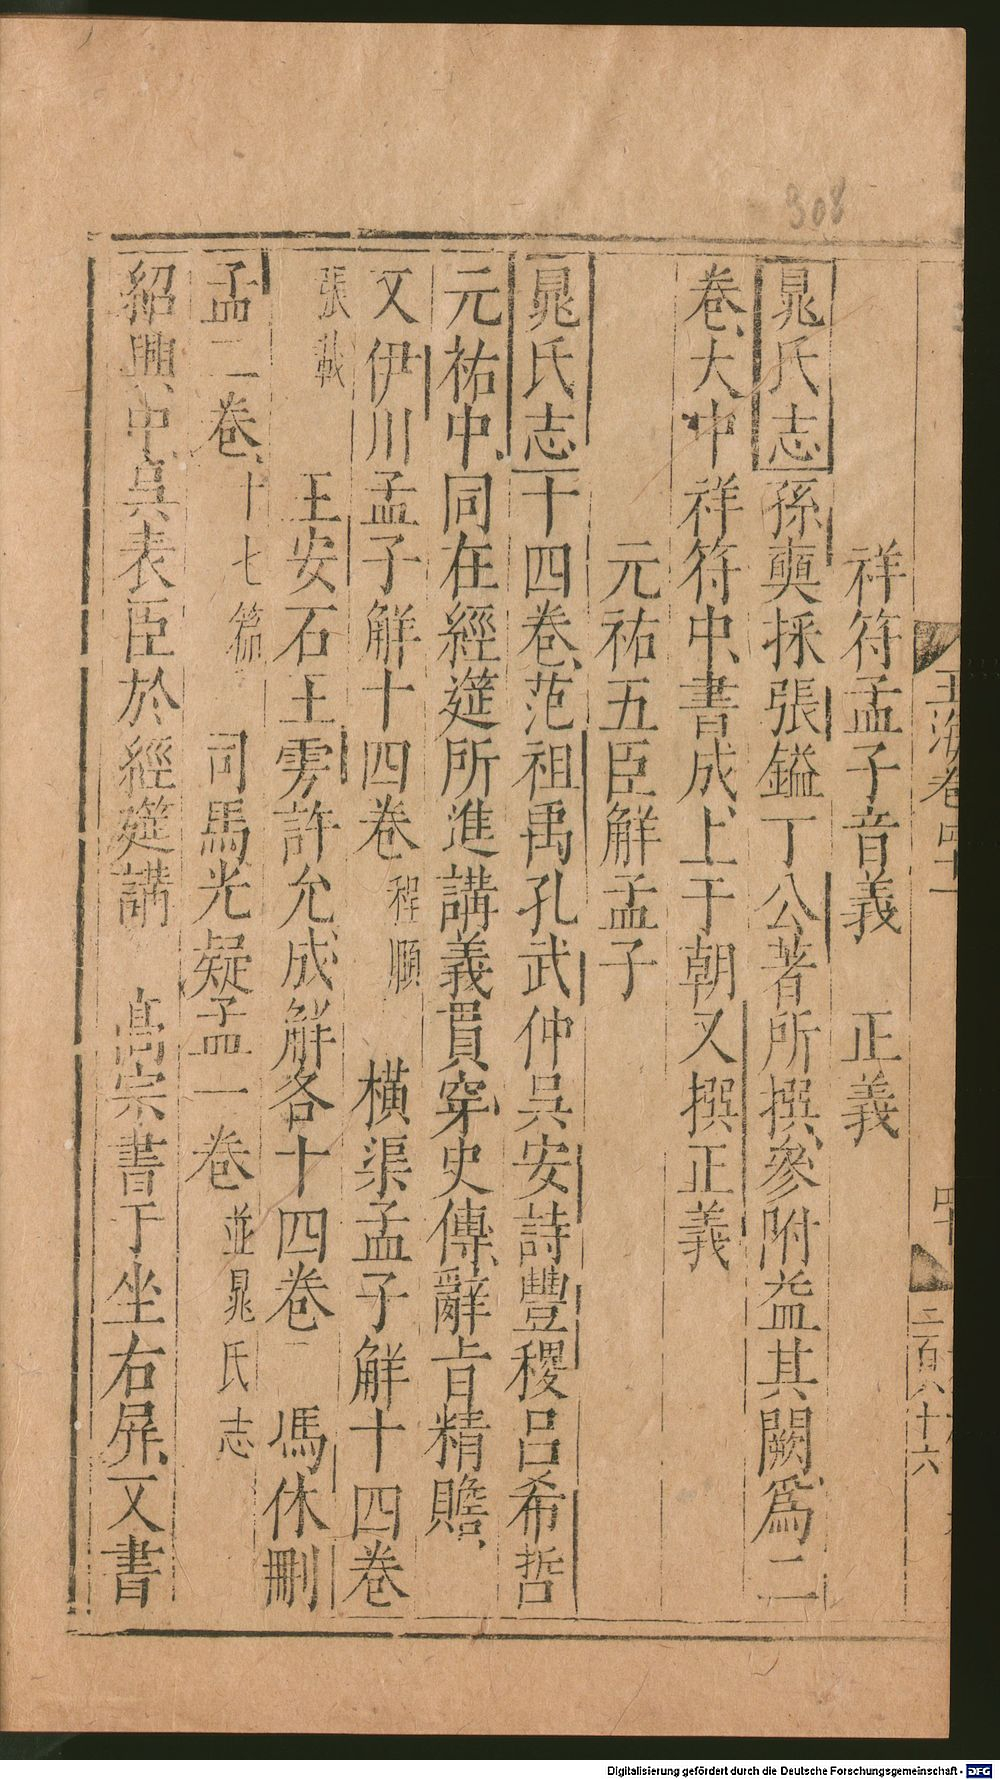 308
祥符孟子音義　正義
晁氏志孫奭採張鎰丁公著所撰參附益其闕爲二
卷大中祥符中書成上于朝又撰正義
元祐五臣解孟子
晁氏志十四卷范祖禹孔武仲吳安詩豐稷呂希哲
元祐中同在經筵所進講義貫穿史傳辭旨精贍
又伊川孟子解十四卷程順　橫渠孟子解十四卷
張載　王安石王雱許允成解各十四卷　馮休刪
孟二卷十七篇　司馬光疑孟一卷並晁氏志
紹興中吳表臣於經筵講　高宗書于坐右屛又書
玉海卷四十一
二百八十六
Digitalisierung gefördert durch die Deutsche Forschungsgemeinschaft - DFG